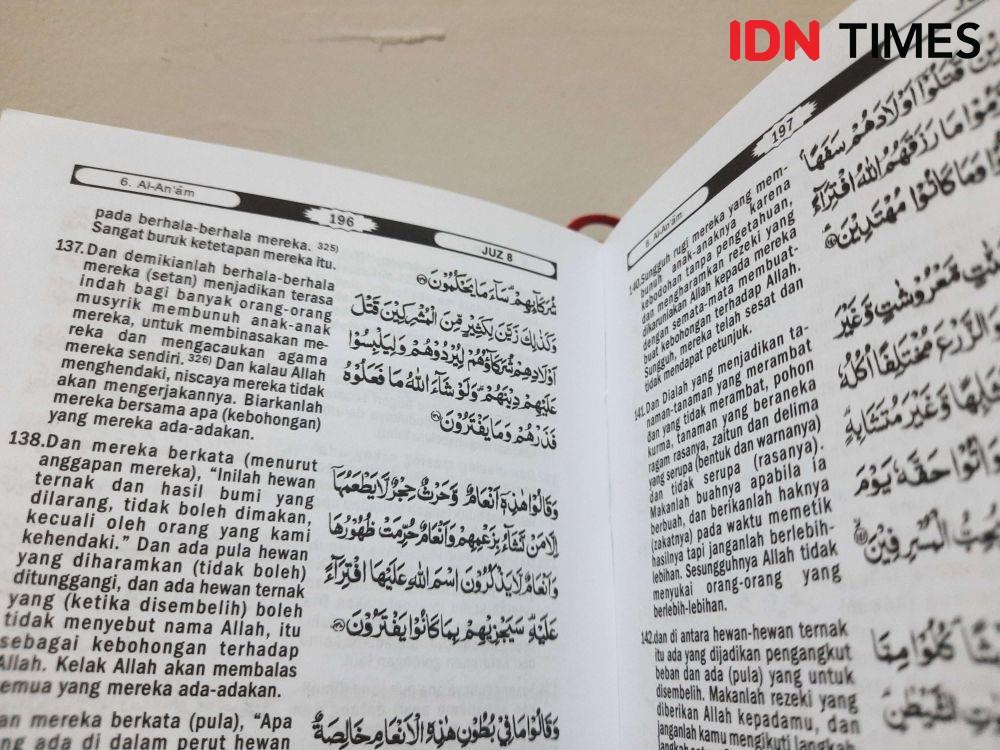 IDN TIMES
6. Al-An'ām
196
JUZ 8
pada berhala-berhala mereka. 325)
Sangat buruk ketetapan mereka itu.
137.Dan demikianlah berhala-berhala
mereka (setan) menjadikan terasa
indah bagi banyak orang-orang
musyrik membunuh anak-anak
mereka, untuk membinasakan me-
reka dan mengacaukan agama
mereka sendiri. 326) Dan kalau Allah
menghendaki, niscaya mereka tidak
akan mengerjakannya. Biarkanlah
mereka bersama apa (kebohongan)
yang mereka ada-adakan.
138.Dan mereka berkata (menurut
anggapan mereka), “Inilah hewan
ternak dan hasil bumi yang
dilarang, tidak boleh dimakan,
kecuali oleh orang yang kami
kehendaki.” Dan ada pula hewan
yang diharamkan (tidak boleh)
ditunggangi, dan ada hewan ternak
yang (ketika disembelih) boleh
tidak menyebut nama Allah, itu
sebagai kebohongan terhadap
Allah. Kelak Allah akan membalas
semua yang mereka ada-adakan.
mereka berkata (pula), “Apa
ada di dalam perut hewan
شُرَكَاۤىِٕهِمْۗ سَاۤءَ مَا يَحْكُمُوْنَ
وَكَذٰلِكَ زَيَّنَ لِكَثِيْرٍ مِّنَ الْمُشْرِكِيْنَ قَتْلَ
اَوْلَادِهِمْ شُرَكَاۤؤُهُمْ لِيُرْدُوْهُمْ وَلِيَلْبِسُوْا
عَلَيْهِمْ دِيْنَهُمْۗ وَلَوْ شَاۤءَ اللّٰهُ مَا فَعَلُوْهُ
فَذَرْهُمْ وَمَا يَفْتَرُوْنَ
وَقَالُوْا هٰذِهٖٓ اَنْعَامٌ وَّحَرْثٌ حِجْرٌ لَّا يَطْعَمُهَآ
اِلَّا مَنْ نَّشَاۤءُ بِزَعْمِهِمْ وَاَنْعَامٌ حُرِّمَتْ ظُهُوْرُهَا
وَاَنْعَامٌ لَّا يَذْكُرُوْنَ اسْمَ اللّٰهِ عَلَيْهَا افْتِرَاۤءً
عَلَيْهِۗ سَيَجْزِيْهِمْ بِمَا كَانُوْا يَفْتَرُوْنَ
وَقَالُوْا مَا فِيْ بُطُوْنِ هٰذِهِ الْاَنْعَامِ خَالِصَةٌ
6. Al-An'ām
197
140.Sungguh rugi mereka yang mem-
bunuh anak-anaknya karena
kebodohan tanpa pengetahuan,
dan mengharamkan rezeki yang
dikaruniakan Allah kepada mereka
dengan semata-mata membuat-
buat kebohongan terhadap Allah.
Sungguh, mereka telah sesat dan
tidak mendapat petunjuk.
141.Dan Dialah yang menjadikan ta-
naman-tanaman yang merambat
dan yang tidak merambat, pohon
kurma, tanaman yang beraneka
ragam rasanya, zaitun dan delima
yang serupa (bentuk dan warnanya)
dan tidak serupa (rasanya).
Makanlah buahnya apabila ia
berbuah, dan berikanlah haknya
(zakatnya) pada waktu memetik
hasilnya tapi janganlah berlebih-
lebihan. Sesungguhnya Allah tidak
menyukai orang-orang yang
berlebih-lebihan.
142.dan di antara hewan-hewan ternak
itu ada yang dijadikan pengangkut
beban dan ada (pula) yang untuk
disembelih. Makanlah rezeki yang
diberikan Allah kepadamu, dan
janganlah kamu mengikuti langkah-
قَتَلُوْٓا اَوْلَادَهُمْ سَفَهًا
مَا رَزَقَهُمُ اللّٰهُ افْتِرَاۤءً
وَمَا كَانُوْا مُهْتَدِيْنَ
مَّعْرُوْشٰتٍ وَّغَيْرَ
وَّالزَّرْعَ مُخْتَلِفًا اُكُلُهٗ
وَّغَيْرَ مُتَشَابِهٍۗ
وَاٰتُوْا حَقَّهٗ يَوْمَ
الْمُسْرِفِيْنَ
كُلُوْا مِمَّا